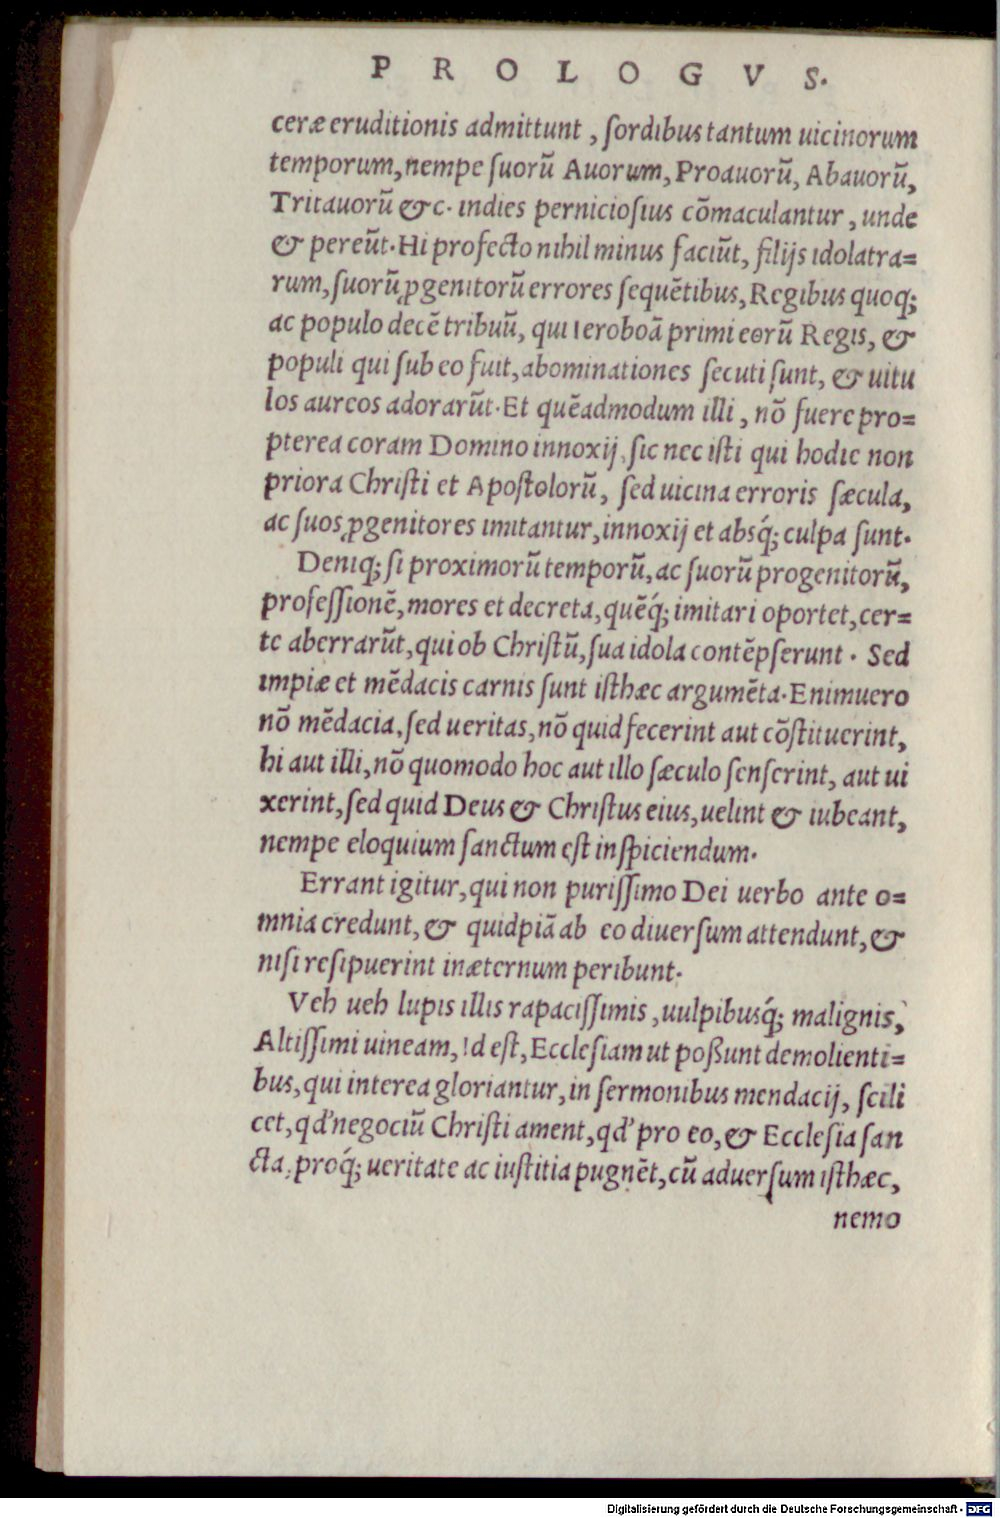 PROLOGVS.
ceræ eruditionis admittunt, ſordibus tantum uicinorum
temporum, nempe ſuorū Auorum, Proauorū, Abauorū,
Tritauorū &c. indies pernicioſius cōmaculantur, unde
& pereūt. Hi profecto nihil minus faciūt, filijs idolatra=
rum, ſuorū ꝓgenitorū errores ſequētibus, Regibus quoq;
ac populo decē tribuū, qui Ieroboā primi eorū Regis, &
populi qui ſub eo fuit, abominationes ſecuti ſunt, & uitu
los aureos adorarūt. Et quēadmodum illi, nō fuere pro=
pterea coram Domino innoxij, ſic nec iſti qui hodie non
priora Chriſti et Apoſtolorū, ſed uicina erroris ſæcula,
ac ſuos ꝓgenitores imitantur, innoxij et absq́; culpa ſunt.
Deniq; ſi proximorū temporū, ac ſuorū progenitorū,
profeſſionē, mores et decreta, quēq́; imitari oportet, cer=
te aberrarūt, qui ob Chriſtū, ſua idola contēpſerunt. Sed
impiæ et mēdacis carnis ſunt iſthæc argumēta. Enimuero
nō mēdacia, ſed ueritas, nō quid fecerint aut cōſtituerint,
hi aut illi, nō quomodo hoc aut illo ſæculo ſenſerint, aut ui
xerint, ſed quid Deus & Chriſtus eius, uelint & iubeant,
nempe eloquium ſanctum eſt inſpiciendum.
Errant igitur, qui non puriſſimo Dei uerbo ante o=
mnia credunt, & quidpiā ab eo diuerſum attendunt, &
niſi reſipuerint inæternum peribunt.
Veh ueh lupis illis rapaciſſimis, uulpibusq́; malignis,
Altiſſimi uineam, Id eſt, Eccleſiam ut poßunt demolienti=
bus, qui interea gloriantur, in ſermonibus mendacij, ſcili
cet, qd' negociū Chriſti ament, qd' pro eo, & Eccleſia ſan
cta, proq́; ueritate ac iuſtitia pugnēt, cū aduerſum iſthæc,
nemo
Digitalisierung gefördert durch die Deutsche Forschungsgemeinschaft - DFG